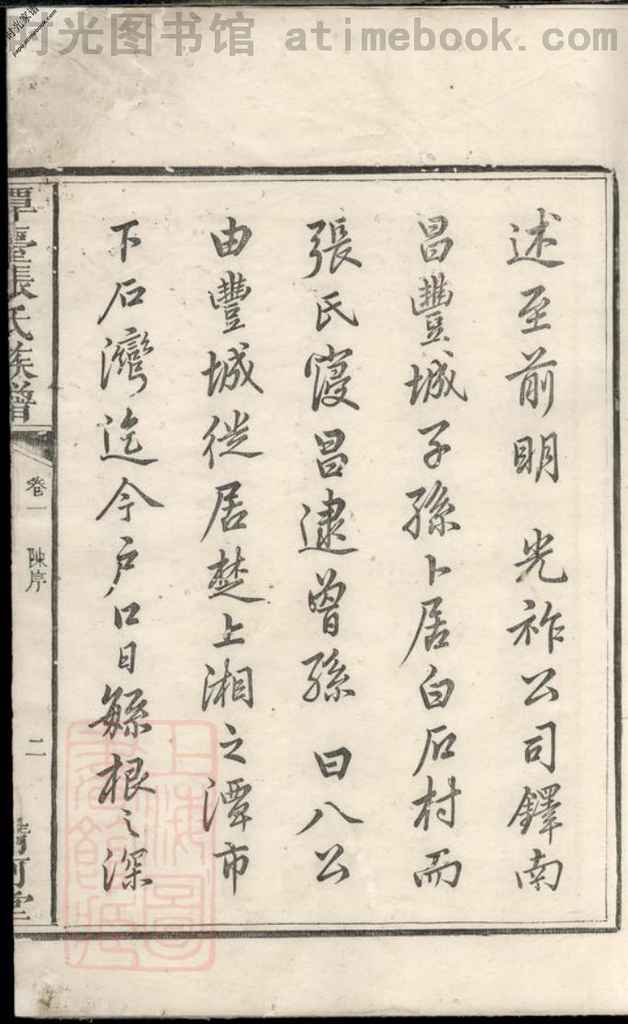 时光图书馆 atimebook.com
述至前明 光祚公司鐸南
昌豐城子孫卜居白石村而
張氏寖昌逮曾孫 曰八公
由豐城徙居楚上湘之潭市
下石灣迄今戶口日繇根之深
張氏族譜
卷一 陳序
二
清河堂
上海圖